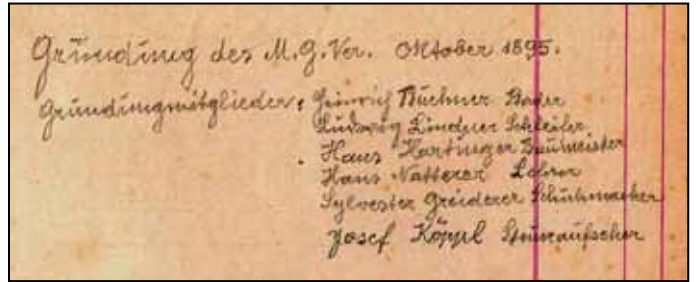 Gründung des M.G.Ver. Oktober 1895.
Gründungsmitglieder: Heinrich Büchner Bader
Ludwig Lindner Schleifer
Hans Hartinger Baumeister
Hans Natterer Lehrer
Sylvester Greiderer Schuhmacher
Josef Köppl Steueraufseher